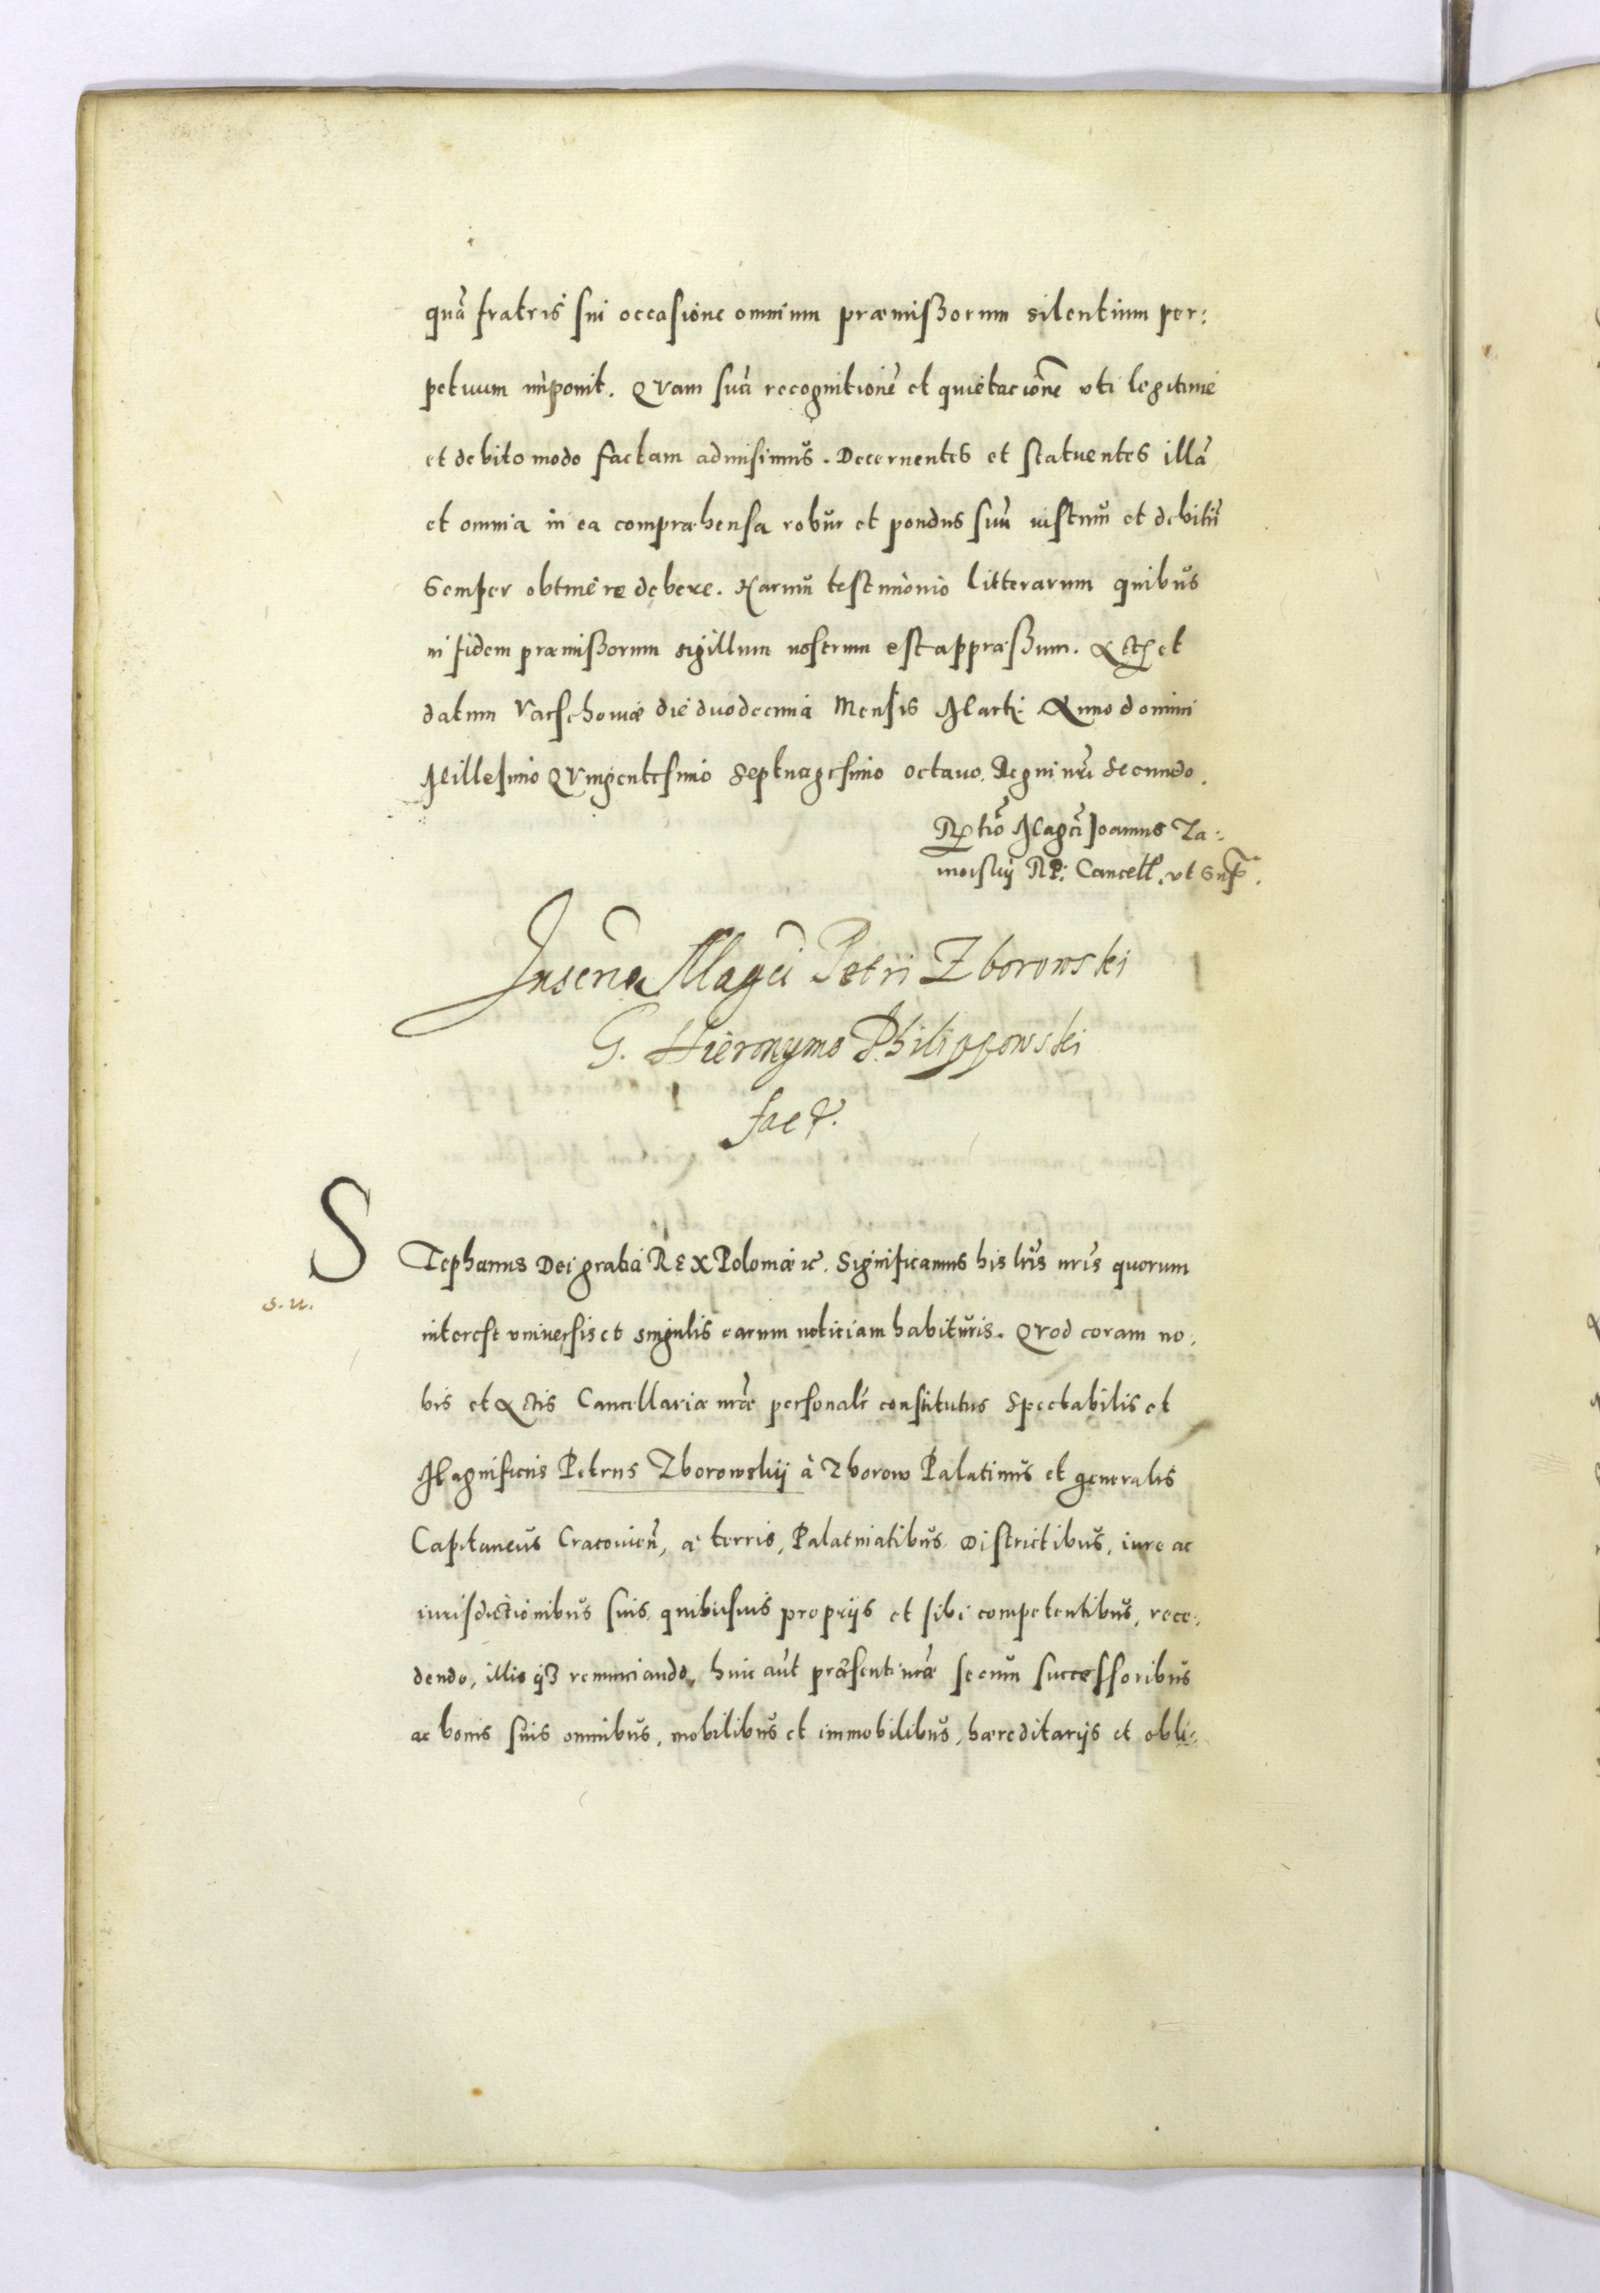 quã fratris sui occasione omnium præmißorum silentium per:
petuum imponit. QVam suã recognitionẽ et quietacionẽ vti legitime
et debito modo factam admisimus. Decernentes et statuentes illã
et omnia in ea compræhensa robur et pondus suũ iustum et debitũ
Semper obtinere debere. Harum testimonio litterarum quibus
in fidem præmißorum sigillum nostrum est appræßum. Act et
datum Varschowiæ die duodecima Mensis Martij Anno domini
Millesimo QVingentesimo Septuagesimo octauo. Regni nr̃i Secundo.
Rtio Magci Joannis Za:
moiskij RP: Cancell. vt Supr.
Inscrip Magci Petri Zborowski
G. Hieronymo Philippowski
fact.
STephanus Dei gratia REX Poloniæ &c. Significamus his lr̃is nr̃is quorum
s. u.
interest vniuersis et singulis earum noticiam habituris. QVod coram no:
bis et Actis Cancellariæ nr̃æ personalr constitutus Spectabilis et
Magnificus Petrus Zborowskij à Zborow Palatinus et generalis
Capitaneus Cracouien̄, a terris, Palatinatibus Districtibus, iure ac
iurisdictionibus suis quibusuis proprijs et sibi competentibus, rece:
dendo, illisq3 renunciando, huic aũt præsenti nr̃æ secum successoribus
ac bonis suis omnibus, mobilibus et immobilibus, hæreditarijs et obli: